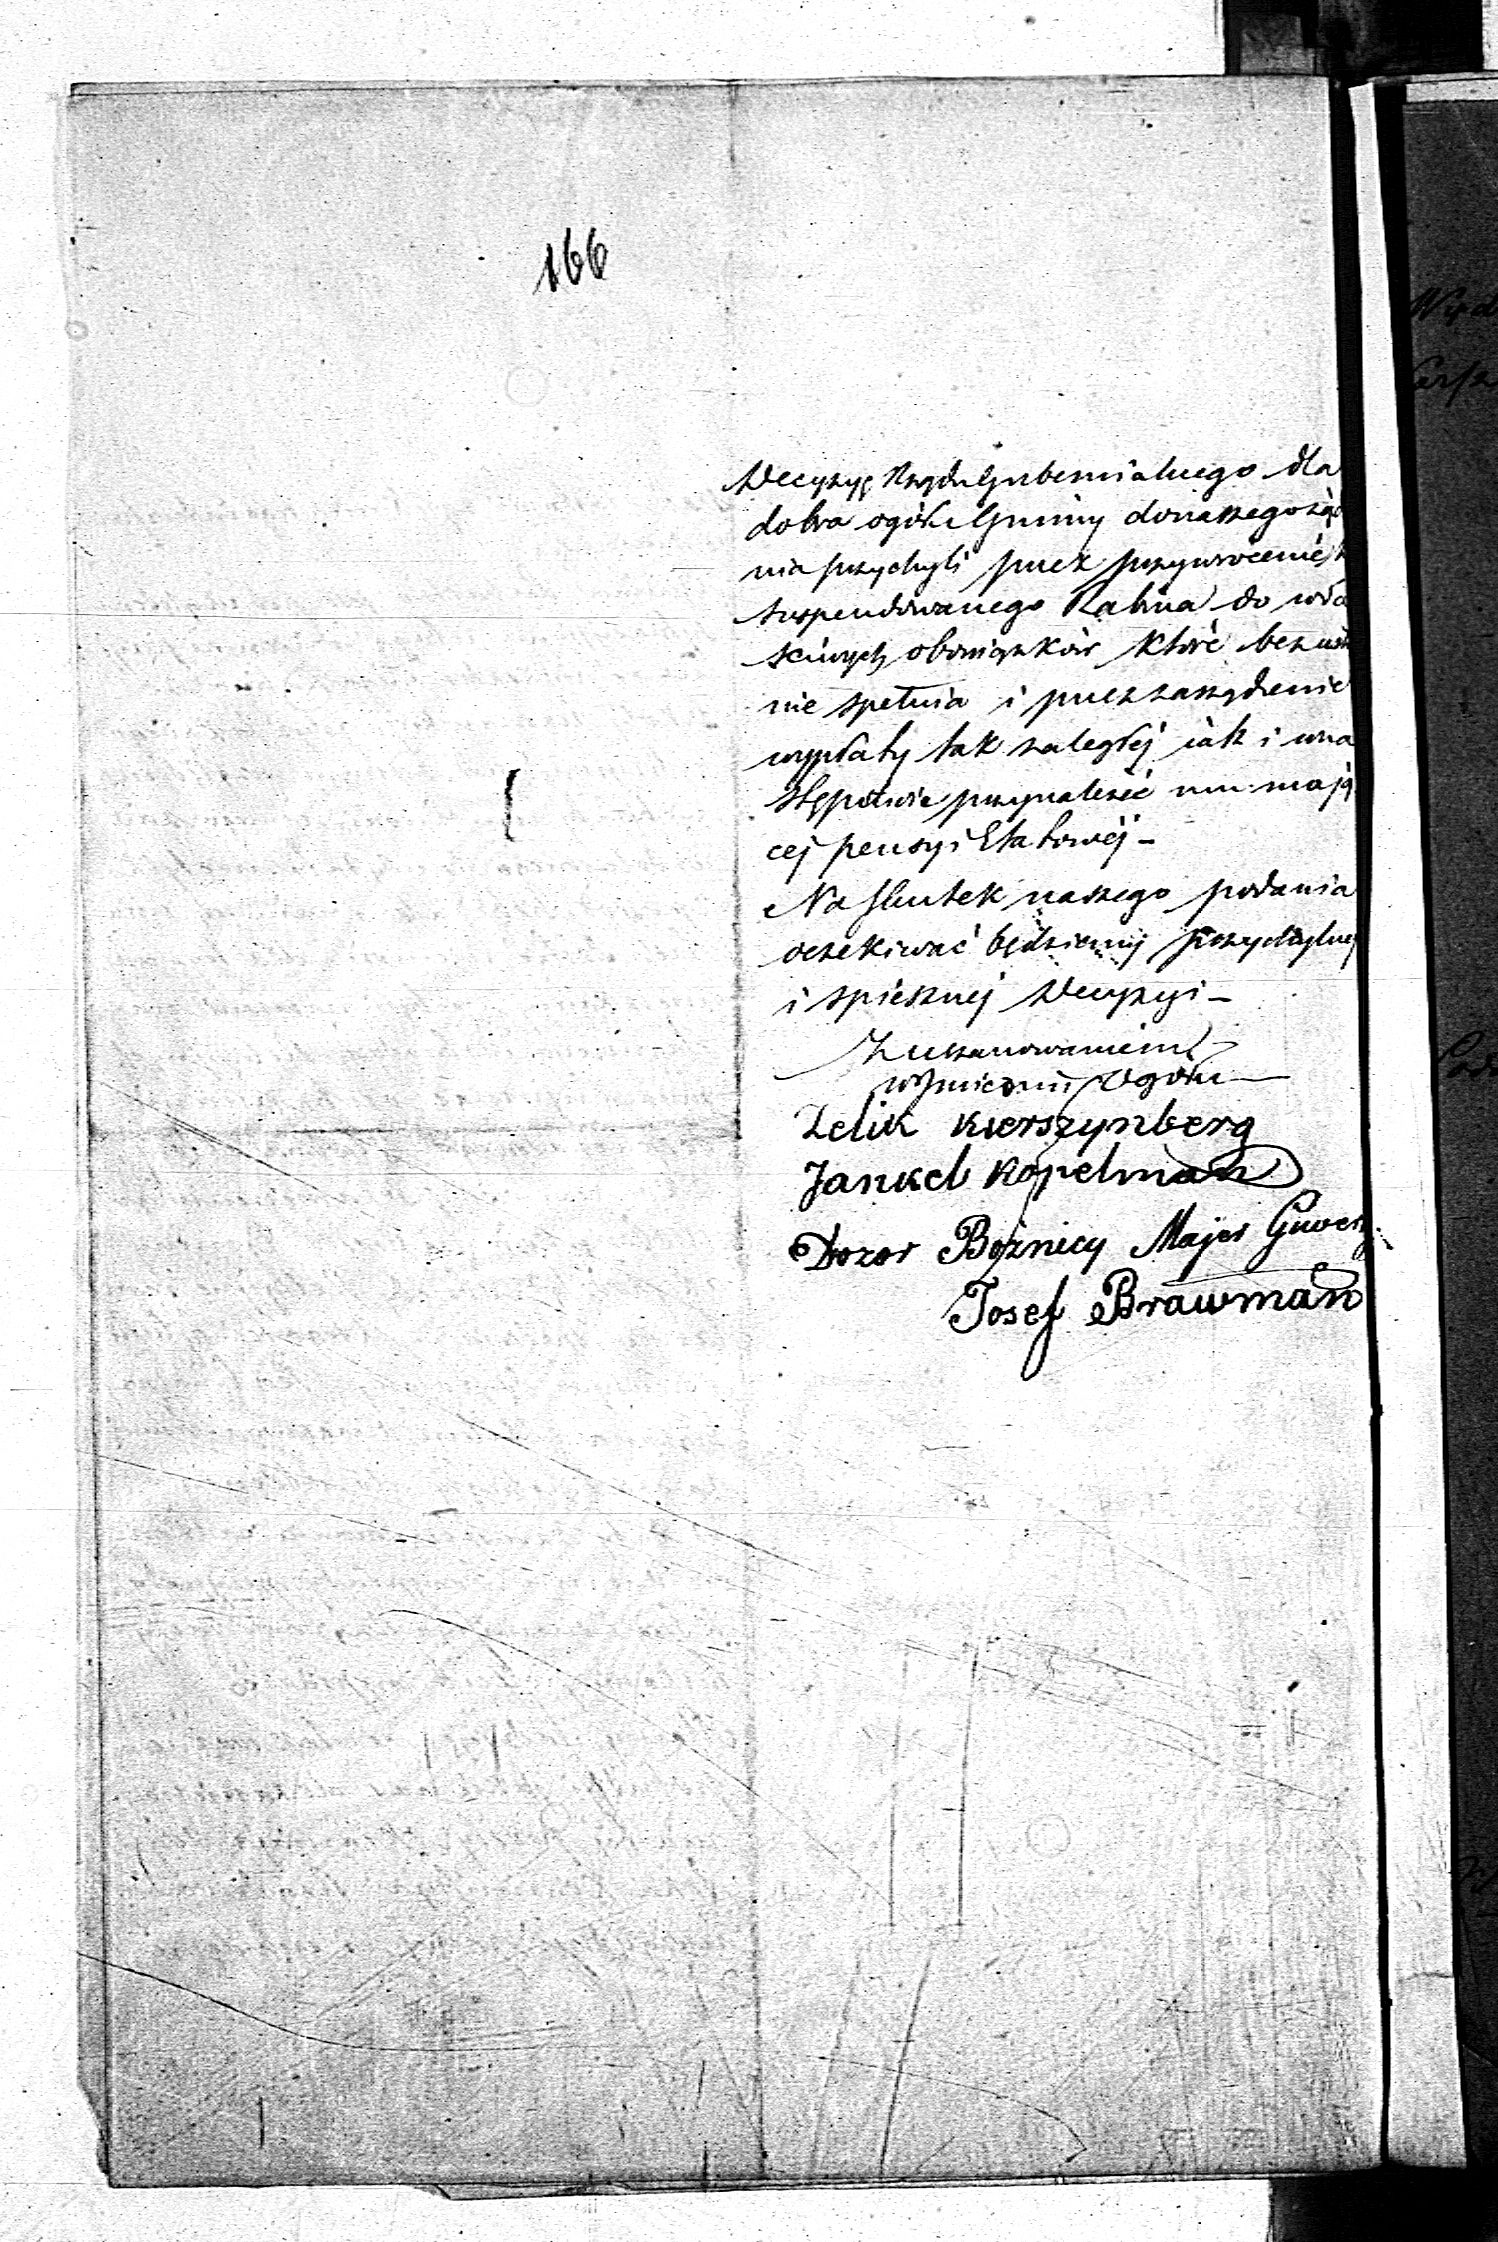 166
Decyzyę Rządu Gubernialnego dla
dobra ogółu Gminy do naszego żąda
nia przychyli przez przywrócenie
suspendowanego Rabina do wła
ściwych obowiązków które bez
nie spełnia i przez zarządzenie
wypłaty tak zaległéj iak i w na
stępstwie przynależéć mu mają
cej pensyi Etatowéj –
Na skutek naszego podania
oczekiwać będziemy przychylnej
i spiesznej Decyzyi –
Z uszanowaniem
w Jmieniu Ogółu
Zelik Kierszynberg
Jankel Kopelman
Dozor Bożnicy Majer
Josef Brawman